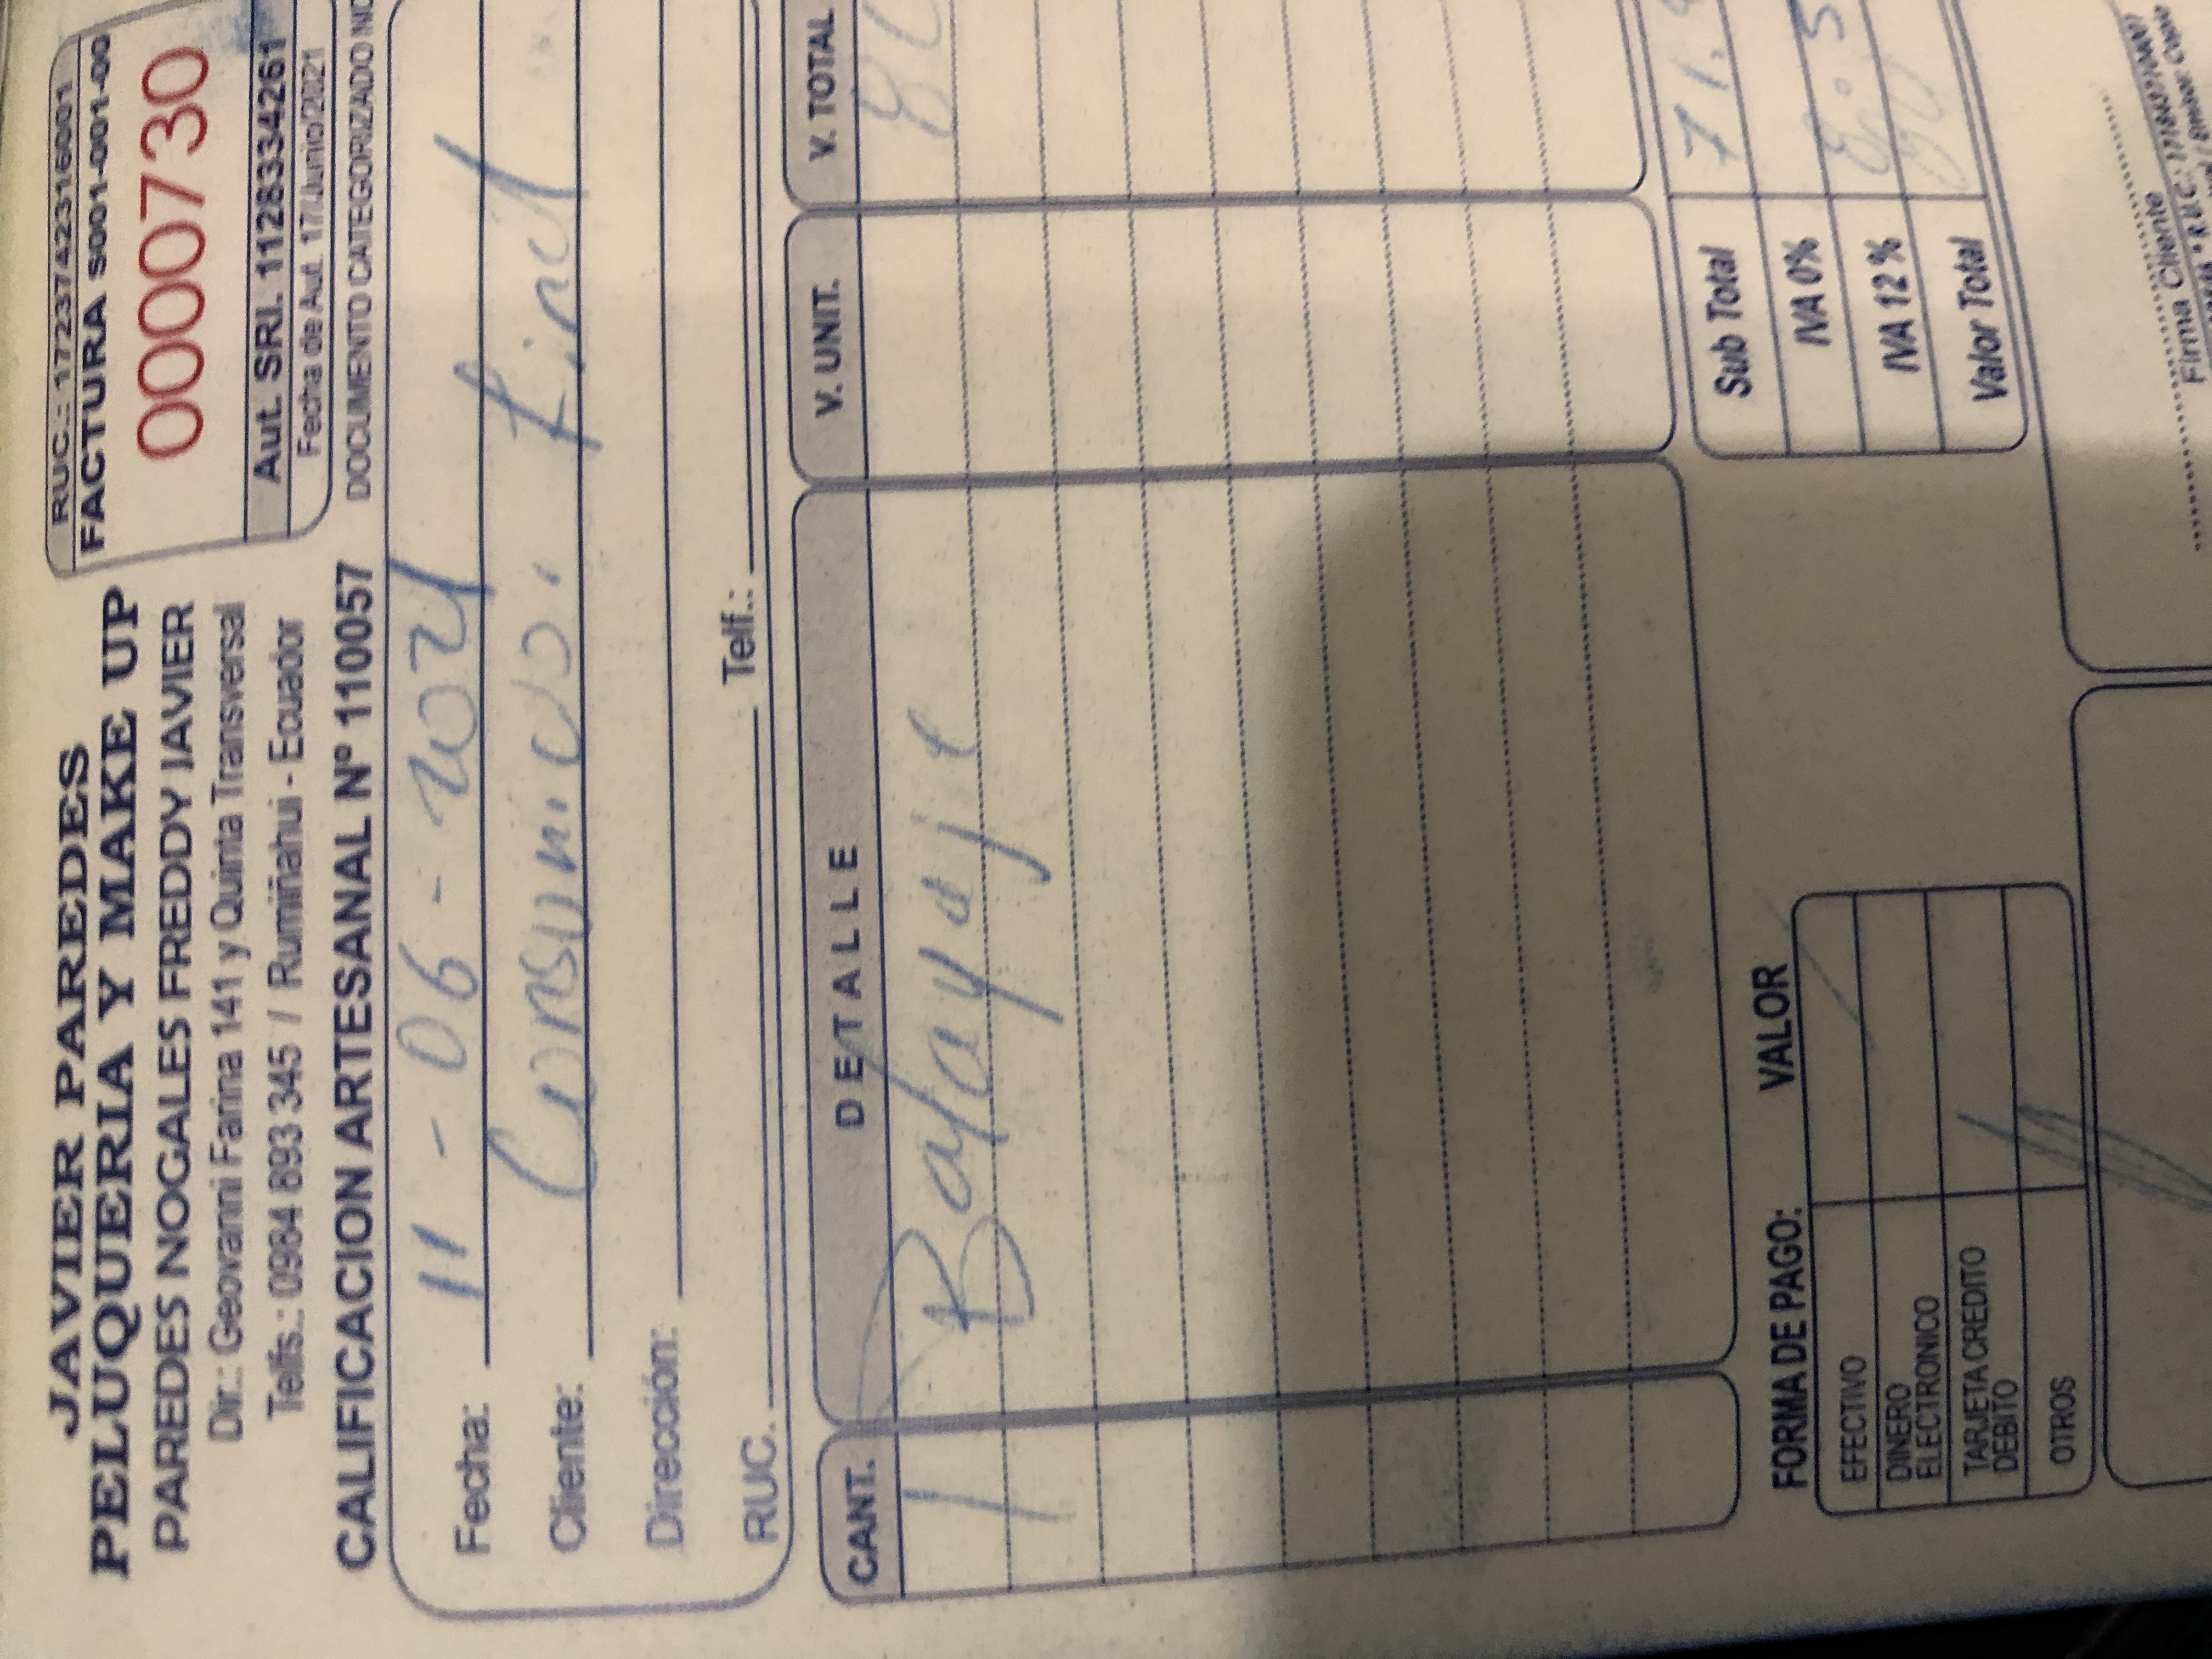 JAVIER PAREDES
PELUQUERIA Y MAKE UP
PAREDES NOGALES FREDDY JAVIER
Dir.: Geovanni Farina 141 y Quinta Transversal
Telfs.: 0984 893 345 / Rumiñahui - Ecuador
CALIFICACION ARTESANAL Nº 110057
RUC.: 1723742316001
FACTURA S001-001-00
0000730
Aut. SRI. 1128334261
Fecha de Aut. 17/Junio/2021
DOCUMENTO CATEGORIZADO NO
Fecha: 11-06-2021
Cliente: Consumidor Final
Dirección:
RUC. Telf.:
CANT. DETALLE V. UNIT. V. TOTAL
1 Balayaje 80
Sub Total 71.
IVA 0%
IVA 12% 8.5
Valor Total 80
FORMA DE PAGO: VALOR
EFECTIVO
DINERO
ELECTRONICO
TARJETA CREDITO
DEBITO
OTROS
Firma Cliente